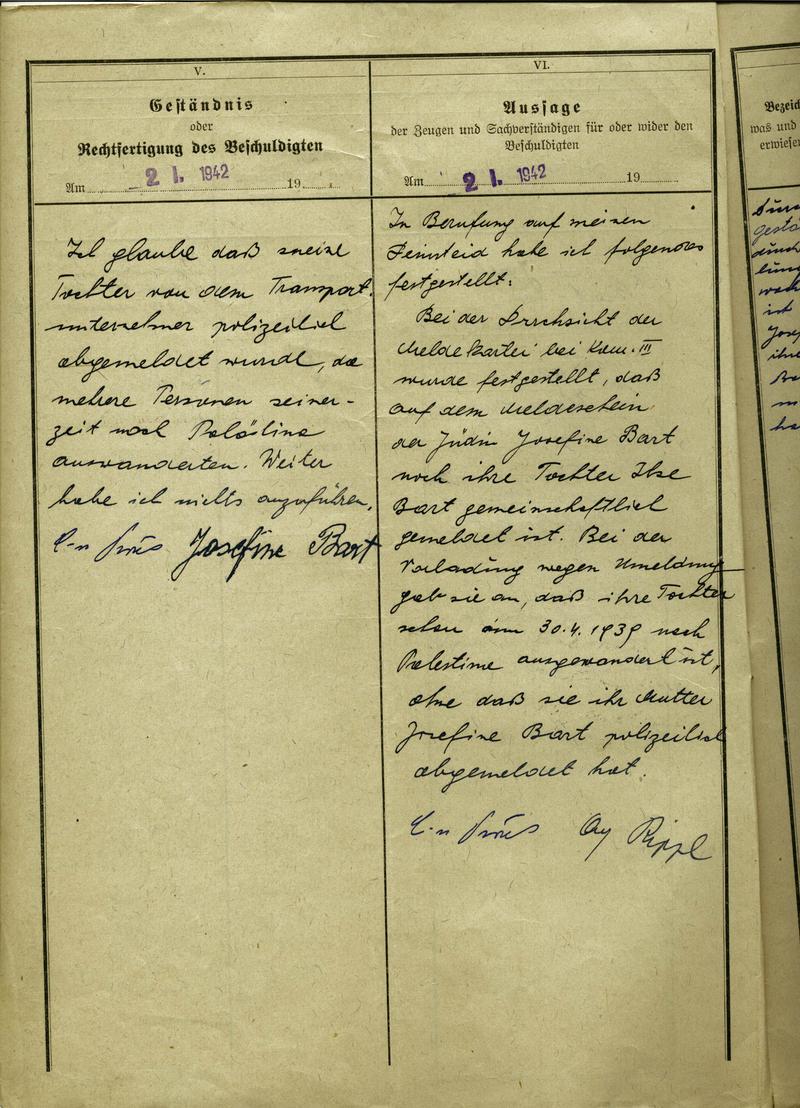 V.
Geständnis
oder
Rechtfertigung des Beschuldigten
Am 2 I. 1942 19
Ich glaube daß meine
Tochter von dem Transport-
unternehmer polizeilich
abgemeldet wurde, da
mehrere Personen seiner-
zeit nach Palästina
auswanderten. Weiter
habe ich nichts anzuführen.
Josefine Bart
VI.
Aussage
der Zeugen und Sachverständigen für oder wider den
Beschuldigten
Am 2 I. 1942 19
In Berufung auf meinen
Diensteid habe ich folgendes
festgestellt:
Bei der Durchsicht der
Meldekartei bei Kom. III
wurde festgestellt, daß
auf dem Meldeschein
der Jüdin Josefine Bart
noch ihre Tochter Ilse
Bart gemeinschaftlich
gemeldet ist. Bei der
Vorladung wegen Ummeldung
gab sie an, daß ihre Tochter
schon am 30.4.1939 nach
Palestina ausgewandert ist,
ohne daß sie ihr Mutter
Josefine Bart polizeilich
abgemeldet hat.
Rippl
Bezeich
was und
erwiesen
durch
ist
ihre